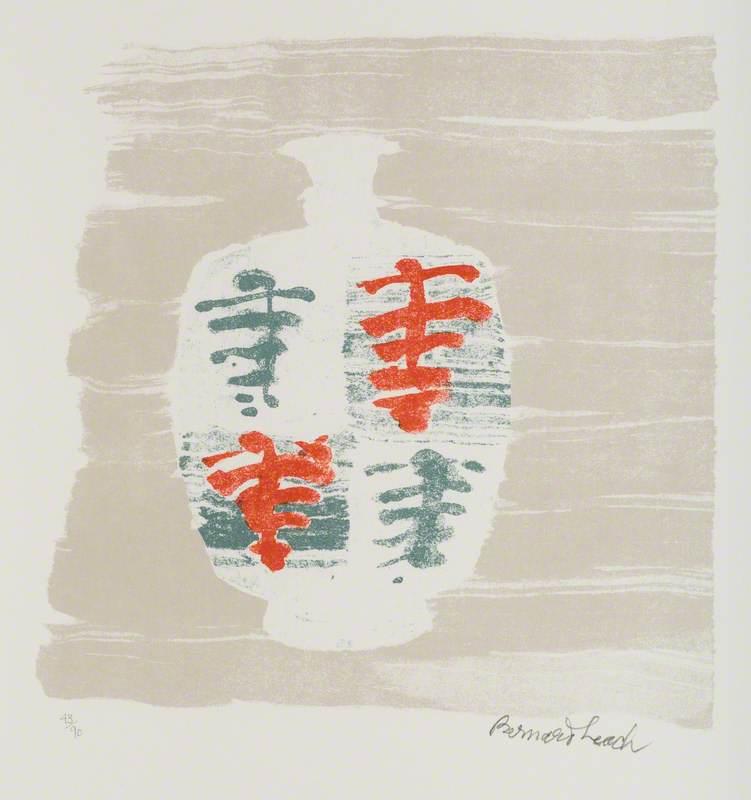 43/90
Bernard Leach